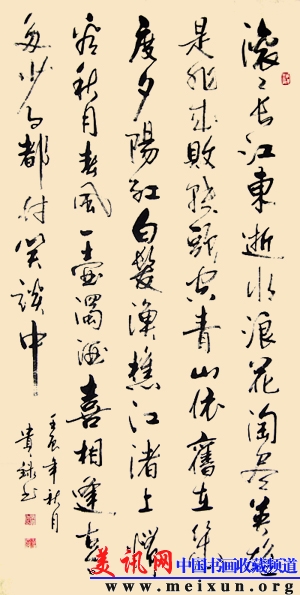 滚〻长江東逝水浪花淘尽英雄
是非成敗轉頭空青山依舊在几
度夕陽紅白髮漁樵江渚上慣
看秋月春風一壶濁酒喜相逢古今
多少事都付笑談中
壬辰年秋月
贵书
美讯网 中国书画收藏频道
www.meixun.org